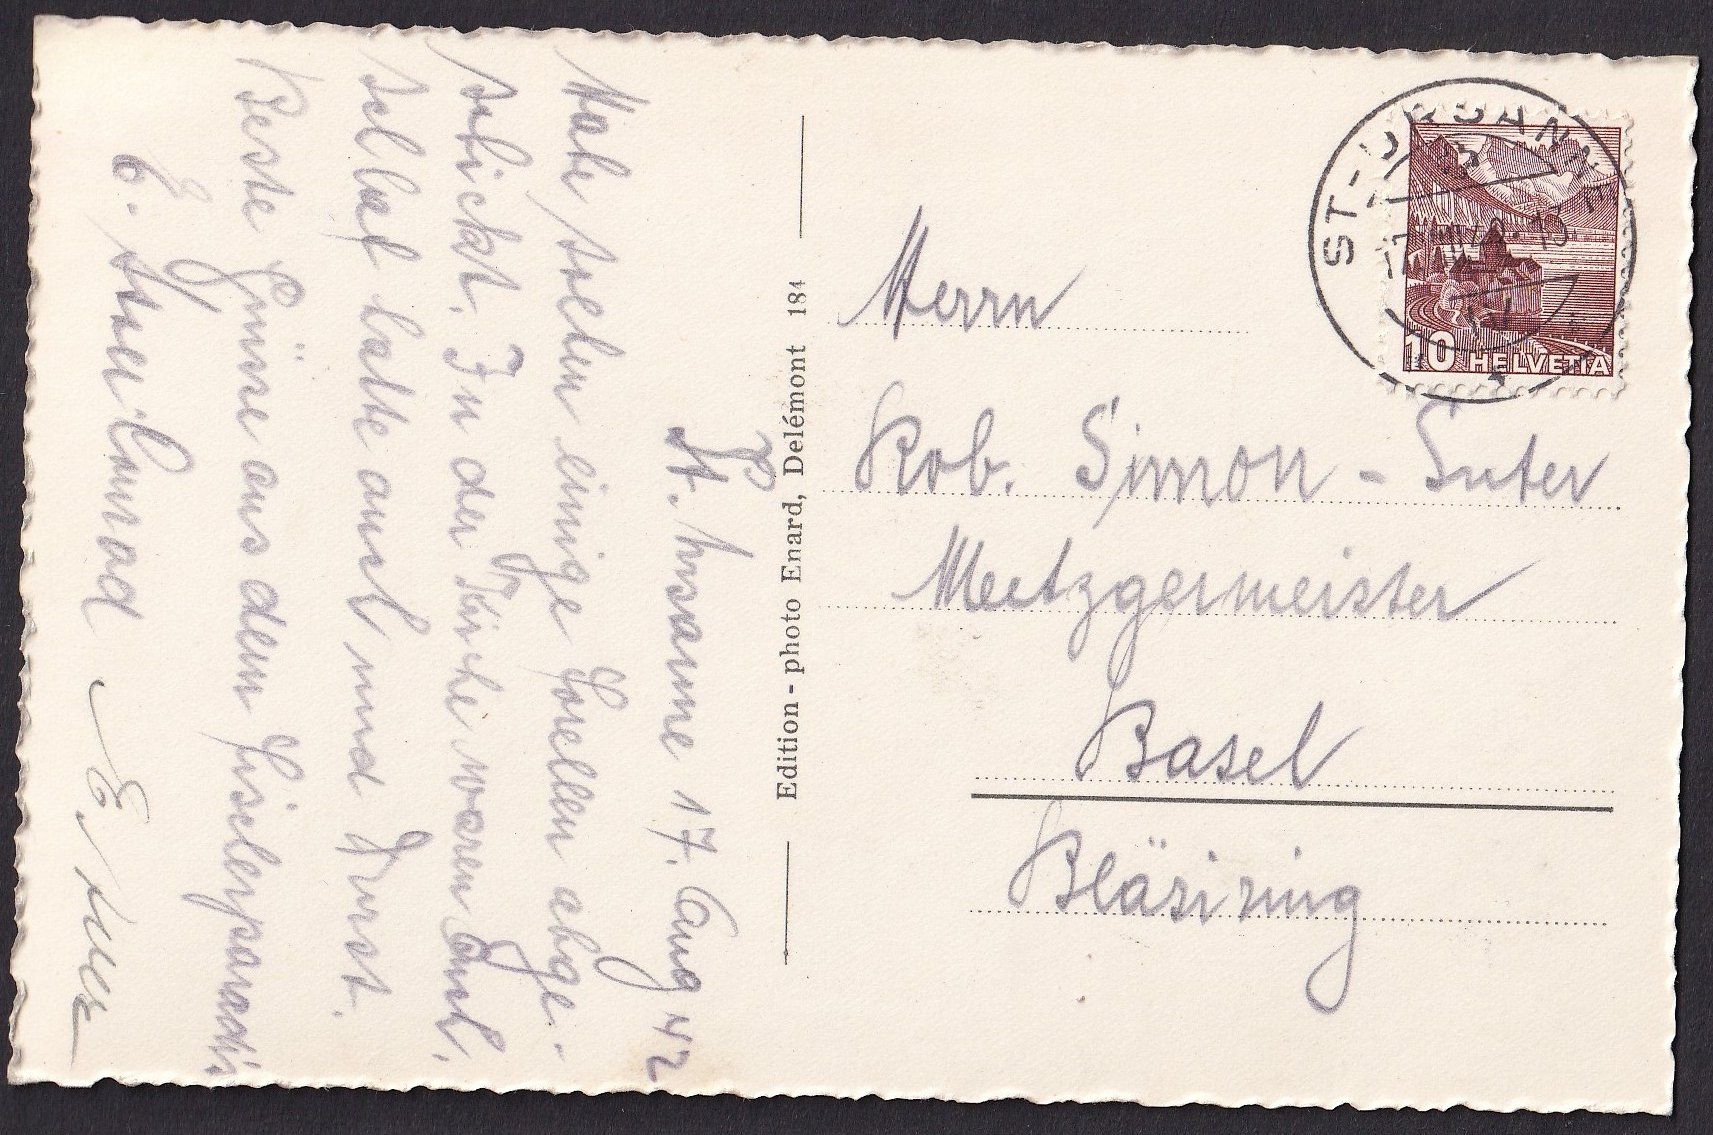 St. Ursanne 17. Aug 42
Habe soeben einige Forellen abge-
schickt. In der Kirche waren auch,
selbst hatte auch und Durst.
Beste Grüsse aus dem Fischerparadis
E. Conrad E.
Edition - photo Enard, Delémont 184
ST-URSANNE
10 HELVETIA
Herrn
Rob. Simon - Suter
Metzgermeister
Basel
Bläsiring